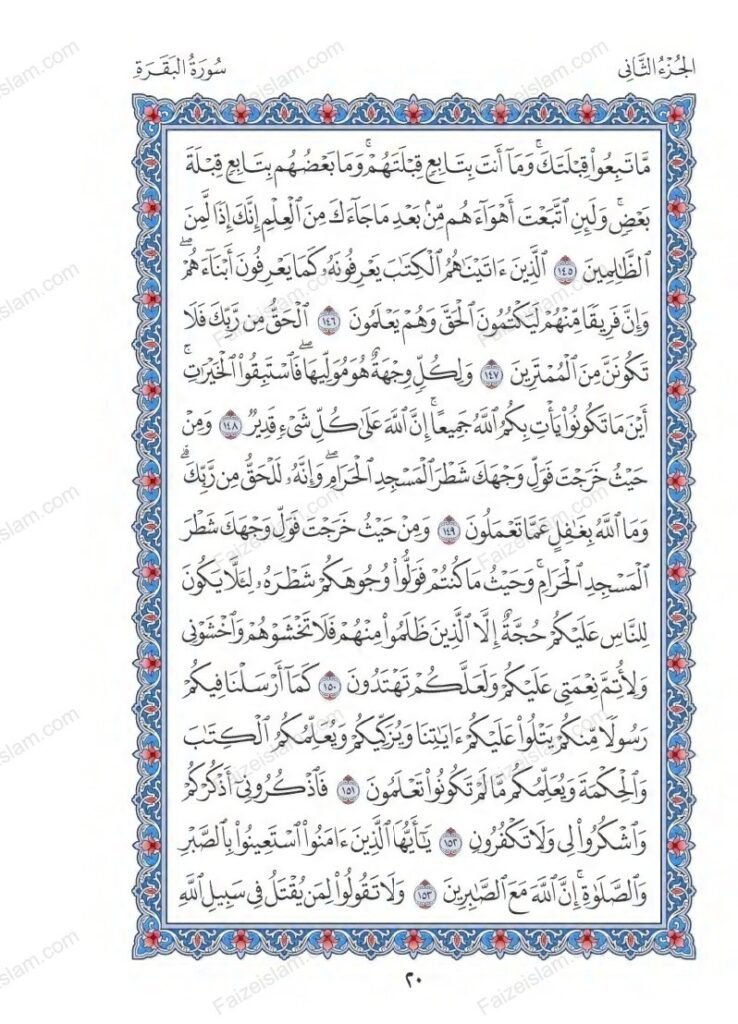 الجُزْءُ الثَّانِي
سُورَةُ البَقَرَةِ
مَّا تَبِعُوا۟ قِبْلَتَكَ ۚ وَمَآ أَنتَ بِتَابِعٍ قِبْلَتَهُمْ ۚ وَمَا بَعْضُهُم بِتَابِعٍ قِبْلَةَ
بَعْضٍ ۚ وَلَئِنِ ٱتَّبَعْتَ أَهْوَآءَهُم مِّنۢ بَعْدِ مَا جَآءَكَ مِنَ ٱلْعِلْمِ إِنَّكَ إِذًا لَّمِنَ
ٱلظَّٰلِمِينَ ١٤٥ ٱلَّذِينَ ءَاتَيْنَٰهُمُ ٱلْكِتَٰبَ يَعْرِفُونَهُۥ كَمَا يَعْرِفُونَ أَبْنَآءَهُمْ ۖ
وَإِنَّ فَرِيقًا مِّنْهُمْ لَيَكْتُمُونَ ٱلْحَقَّ وَهُمْ يَعْلَمُونَ ١٤٦ ٱلْحَقُّ مِن رَّبِّكَ فَلَا
تَكُونَنَّ مِنَ ٱلْمُمْتَرِينَ ١٤٧ وَلِكُلٍّ وِجْهَةٌ هُوَ مُوَلِّيهَا ۖ فَٱسْتَبِقُوا۟ ٱلْخَيْرَٰتِ ۚ
أَيْنَ مَا تَكُونُوا۟ يَأْتِ بِكُمُ ٱللَّهُ جَمِيعًا ۚ إِنَّ ٱللَّهَ عَلَىٰ كُلِّ شَىْءٍ قَدِيرٌ ١٤٨ وَمِنْ
حَيْثُ خَرَجْتَ فَوَلِّ وَجْهَكَ شَطْرَ ٱلْمَسْجِدِ ٱلْحَرَامِ ۖ وَإِنَّهُۥ لَلْحَقُّ مِن رَّبِّكَ ۗ
وَمَا ٱللَّهُ بِغَٰفِلٍ عَمَّا تَعْمَلُونَ ١٤٩ وَمِنْ حَيْثُ خَرَجْتَ فَوَلِّ وَجْهَكَ شَطْرَ
ٱلْمَسْجِدِ ٱلْحَرَامِ ۚ وَحَيْثُ مَا كُنتُمْ فَوَلُّوا۟ وُجُوهَكُمْ شَطْرَهُۥ لِئَلَّا يَكُونَ
لِلنَّاسِ عَلَيْكُمْ حُجَّةٌ إِلَّا ٱلَّذِينَ ظَلَمُوا۟ مِنْهُمْ فَلَا تَخْشَوْهُمْ وَٱخْشَوْنِى
وَلِأُتِمَّ نِعْمَتِى عَلَيْكُمْ وَلَعَلَّكُمْ تَهْتَدُونَ ١٥٠ كَمَآ أَرْسَلْنَا فِيكُمْ
رَسُولًا مِّنكُمْ يَتْلُوا۟ عَلَيْكُمْ ءَايَٰتِنَا وَيُزَكِّيكُمْ وَيُعَلِّمُكُمُ ٱلْكِتَٰبَ
وَٱلْحِكْمَةَ وَيُعَلِّمُكُم مَّا لَمْ تَكُونُوا۟ تَعْلَمُونَ ١٥١ فَٱذْكُرُونِىٓ أَذْكُرْكُمْ
وَٱشْكُرُوا۟ لِى وَلَا تَكْفُرُونِ ١٥٢ يَٰٓأَيُّهَا ٱلَّذِينَ ءَامَنُوا۟ ٱسْتَعِينُوا۟ بِٱلصَّبْرِ
وَٱلصَّلَوٰةِ ۚ إِنَّ ٱللَّهَ مَعَ ٱلصَّٰبِرِينَ ١٥٣ وَلَا تَقُولُوا۟ لِمَن يُقْتَلُ فِى سَبِيلِ ٱللَّهِ
٢٠
Faizeislam.com